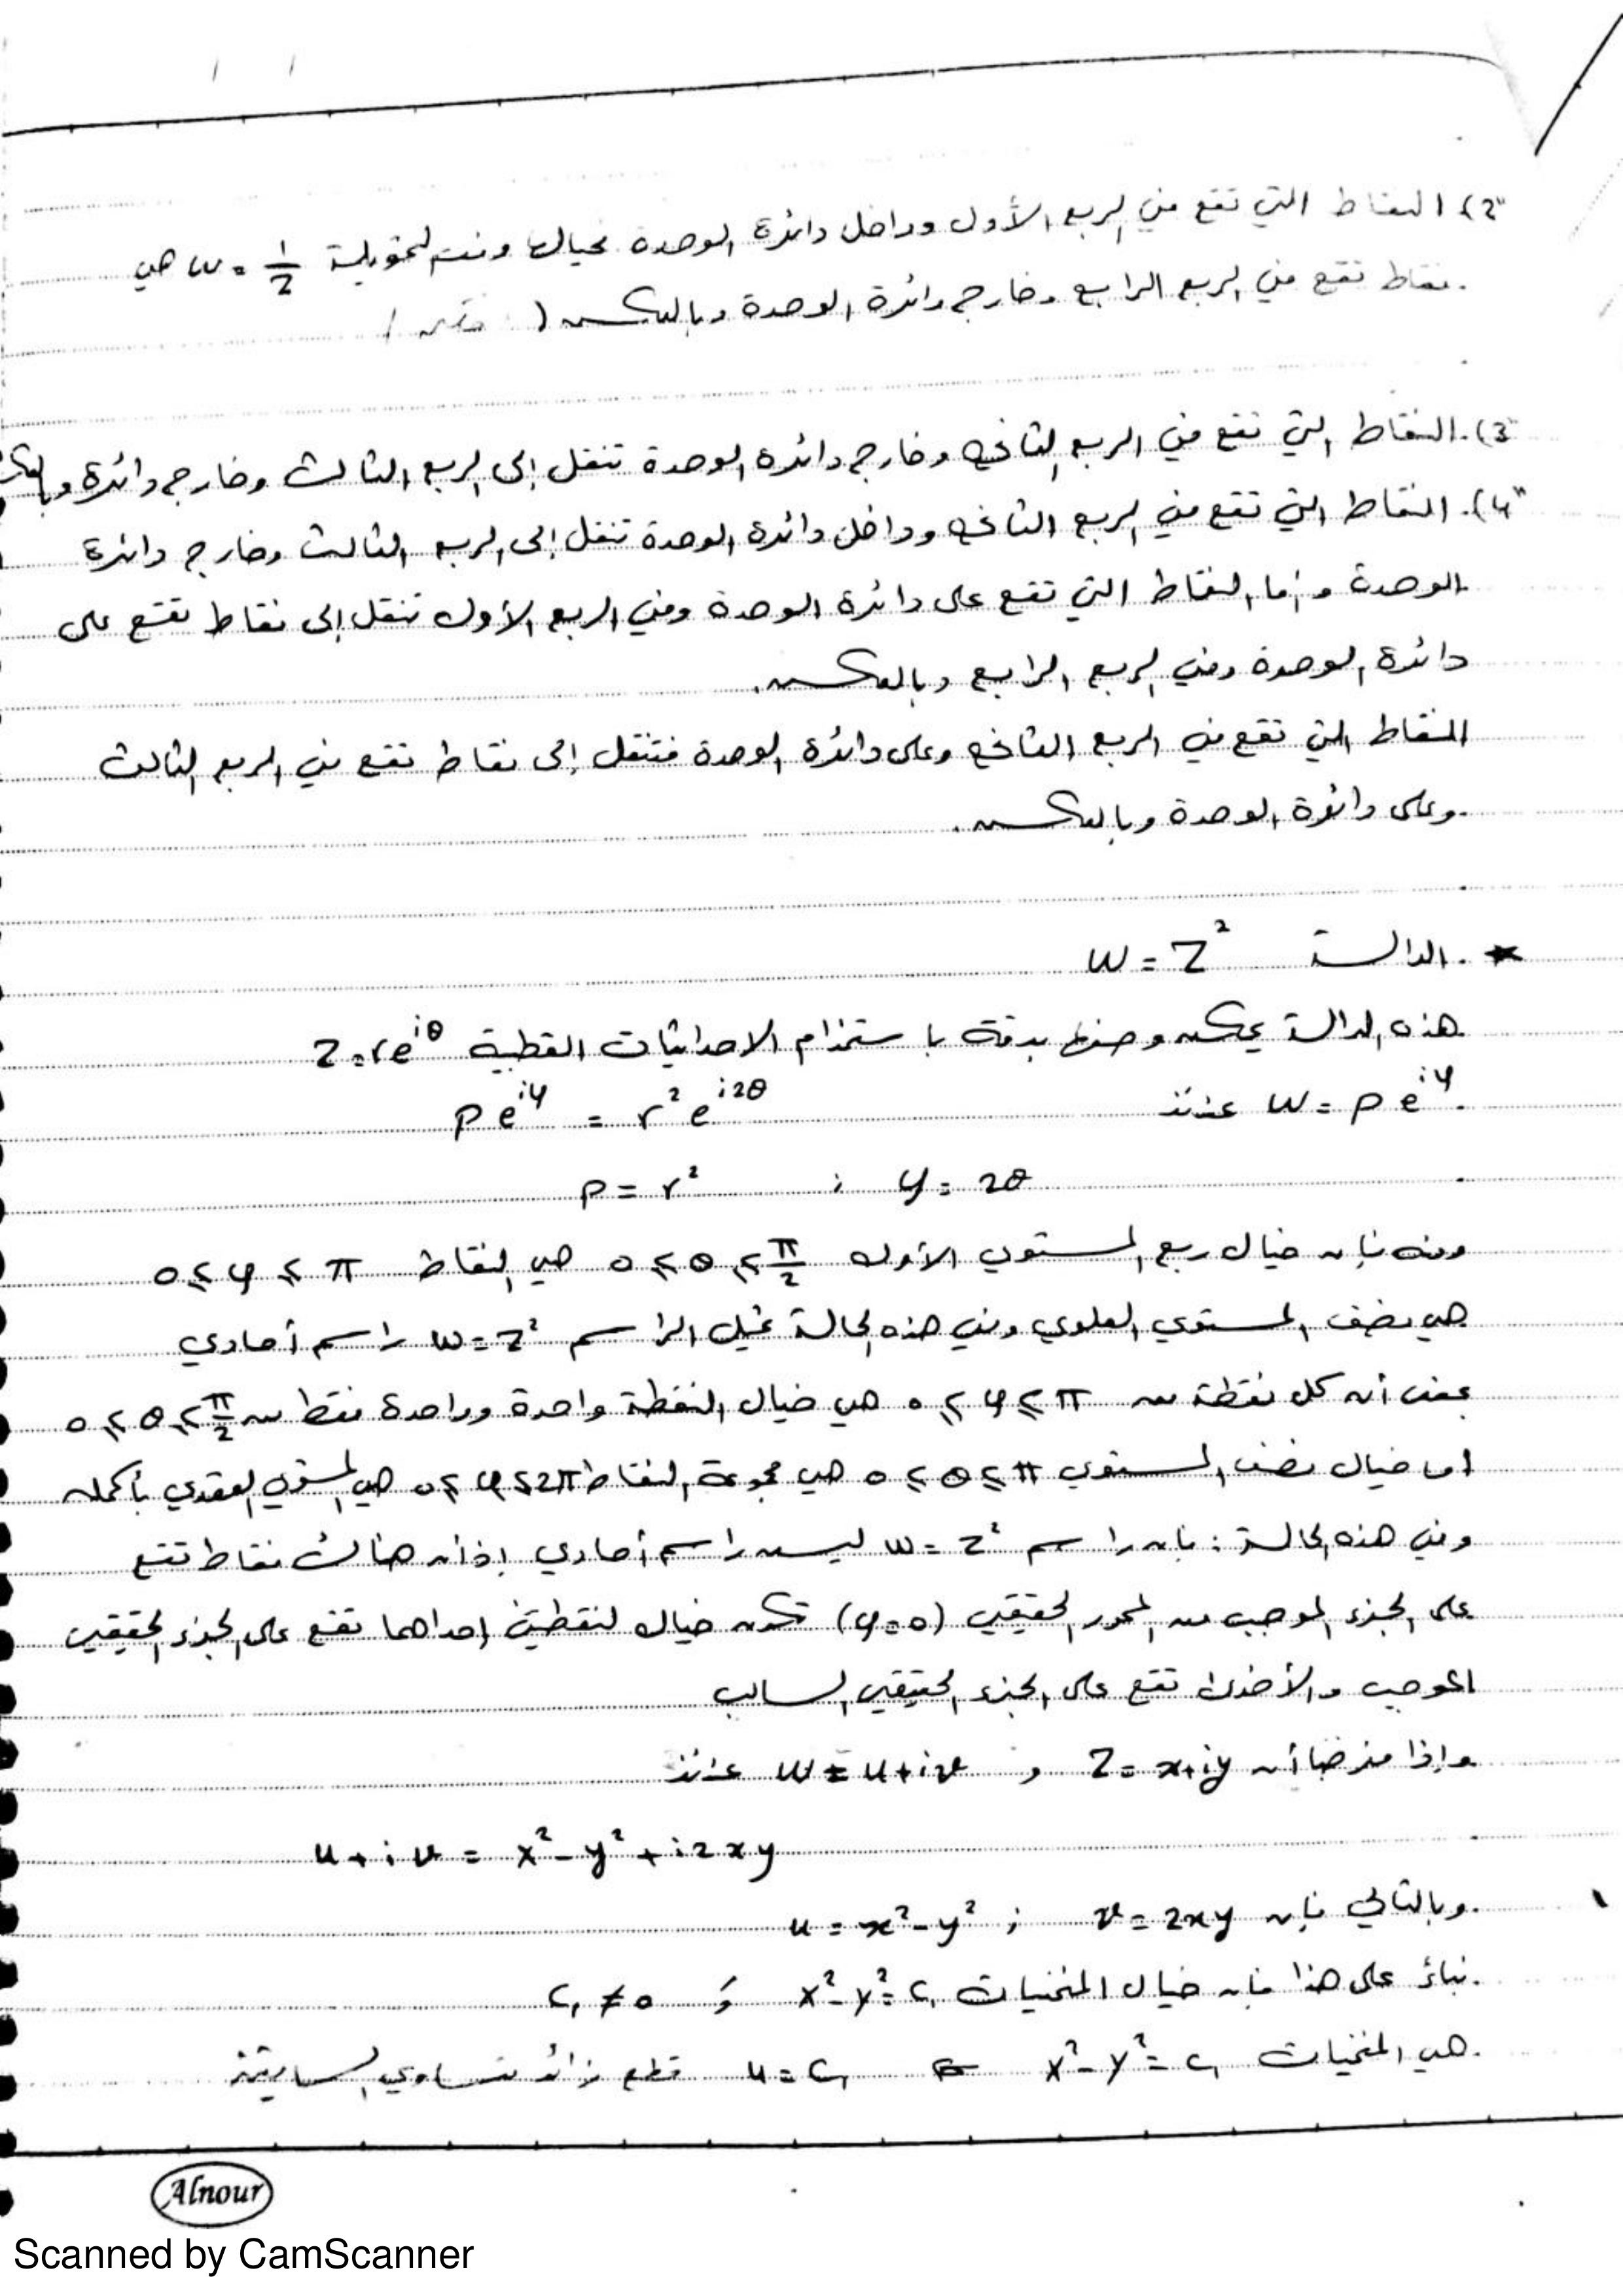 2) النقاط التي تقع في الربع الأول وداخل دائرة الوحدة خيالها وفق التحويلة w = 1/z هي
نقاط تقع في الربع الرابع وخارج دائرة الوحدة وبالعكس (
3) النقاط التي تقع في الربع الثاني وخارج دائرة الوحدة تنقل إلى الربع الثالث وخارج دائرة
4) النقاط التي تقع في الربع الثاني وداخل دائرة الوحدة تنقل إلى الربع الثالث وخارج دائرة
الوحدة وأما النقاط التي تقع على دائرة الوحدة وفي الربع الأول تنقل إلى نقاط تقع على
دائرة الوحدة وفي الربع الرابع وبالعكس.
النقاط التي تقع في الربع الثاني وعلى دائرة الوحدة فتنقل إلى نقاط تقع في الربع الثالث
وعلى دائرة الوحدة وبالعكس.
* الدالة w = z²
هذه الدالة يمكن وصفها بدقة باستخدام الاحداثيات القطبية z = re^{iθ}
w = ρe^{iφ} عندئذ ρe^{iφ} = r²e^{i2θ}
ρ = r² ; φ = 2θ
ومنه فإن خيال ربع المستوي الأول 0 ≤ θ ≤ π/2 هي النقاط 0 ≤ φ ≤ π
هي نصف المستوي العلوي وفي هذه الحالة الراسم w = z² راسم أحادي
بمعنى أن كل نقطة من 0 ≤ φ ≤ π هي خيال لنقطة واحدة وواحدة فقط من 0 ≤ θ ≤ π/2
أما خيال نصف المستوي 0 ≤ θ ≤ π هي مجموعة النقاط 0 ≤ φ ≤ 2π هي المستوي العقدي بأكمله
وفي هذه الحالة : فإن راسم w = z² ليس راسم أحادي إذ أن هنالك نقاط تقع
على الجزء الموجب من المحور الحقيقي (φ = 0) تكون خيال لنقطتين إحداهما تقع على الجزء الحقيقي
الموجب والأخرى تقع على الجزء الحقيقي السالب
وإذا فرضنا أن z = x+iy و w = u+iv عندئذ
u + iv = x² - y² + i2xy
وبالتالي فإن u = x² - y² ; v = 2xy
بناءً على هذا فإن خيال المنحنيات x² - y² = c₁ و c₁ ≠ 0
هي المنحنيات x² - y² = c₁ u = c₁ قطع زائد متساوي الساقين
Alnour
Scanned by CamScanner